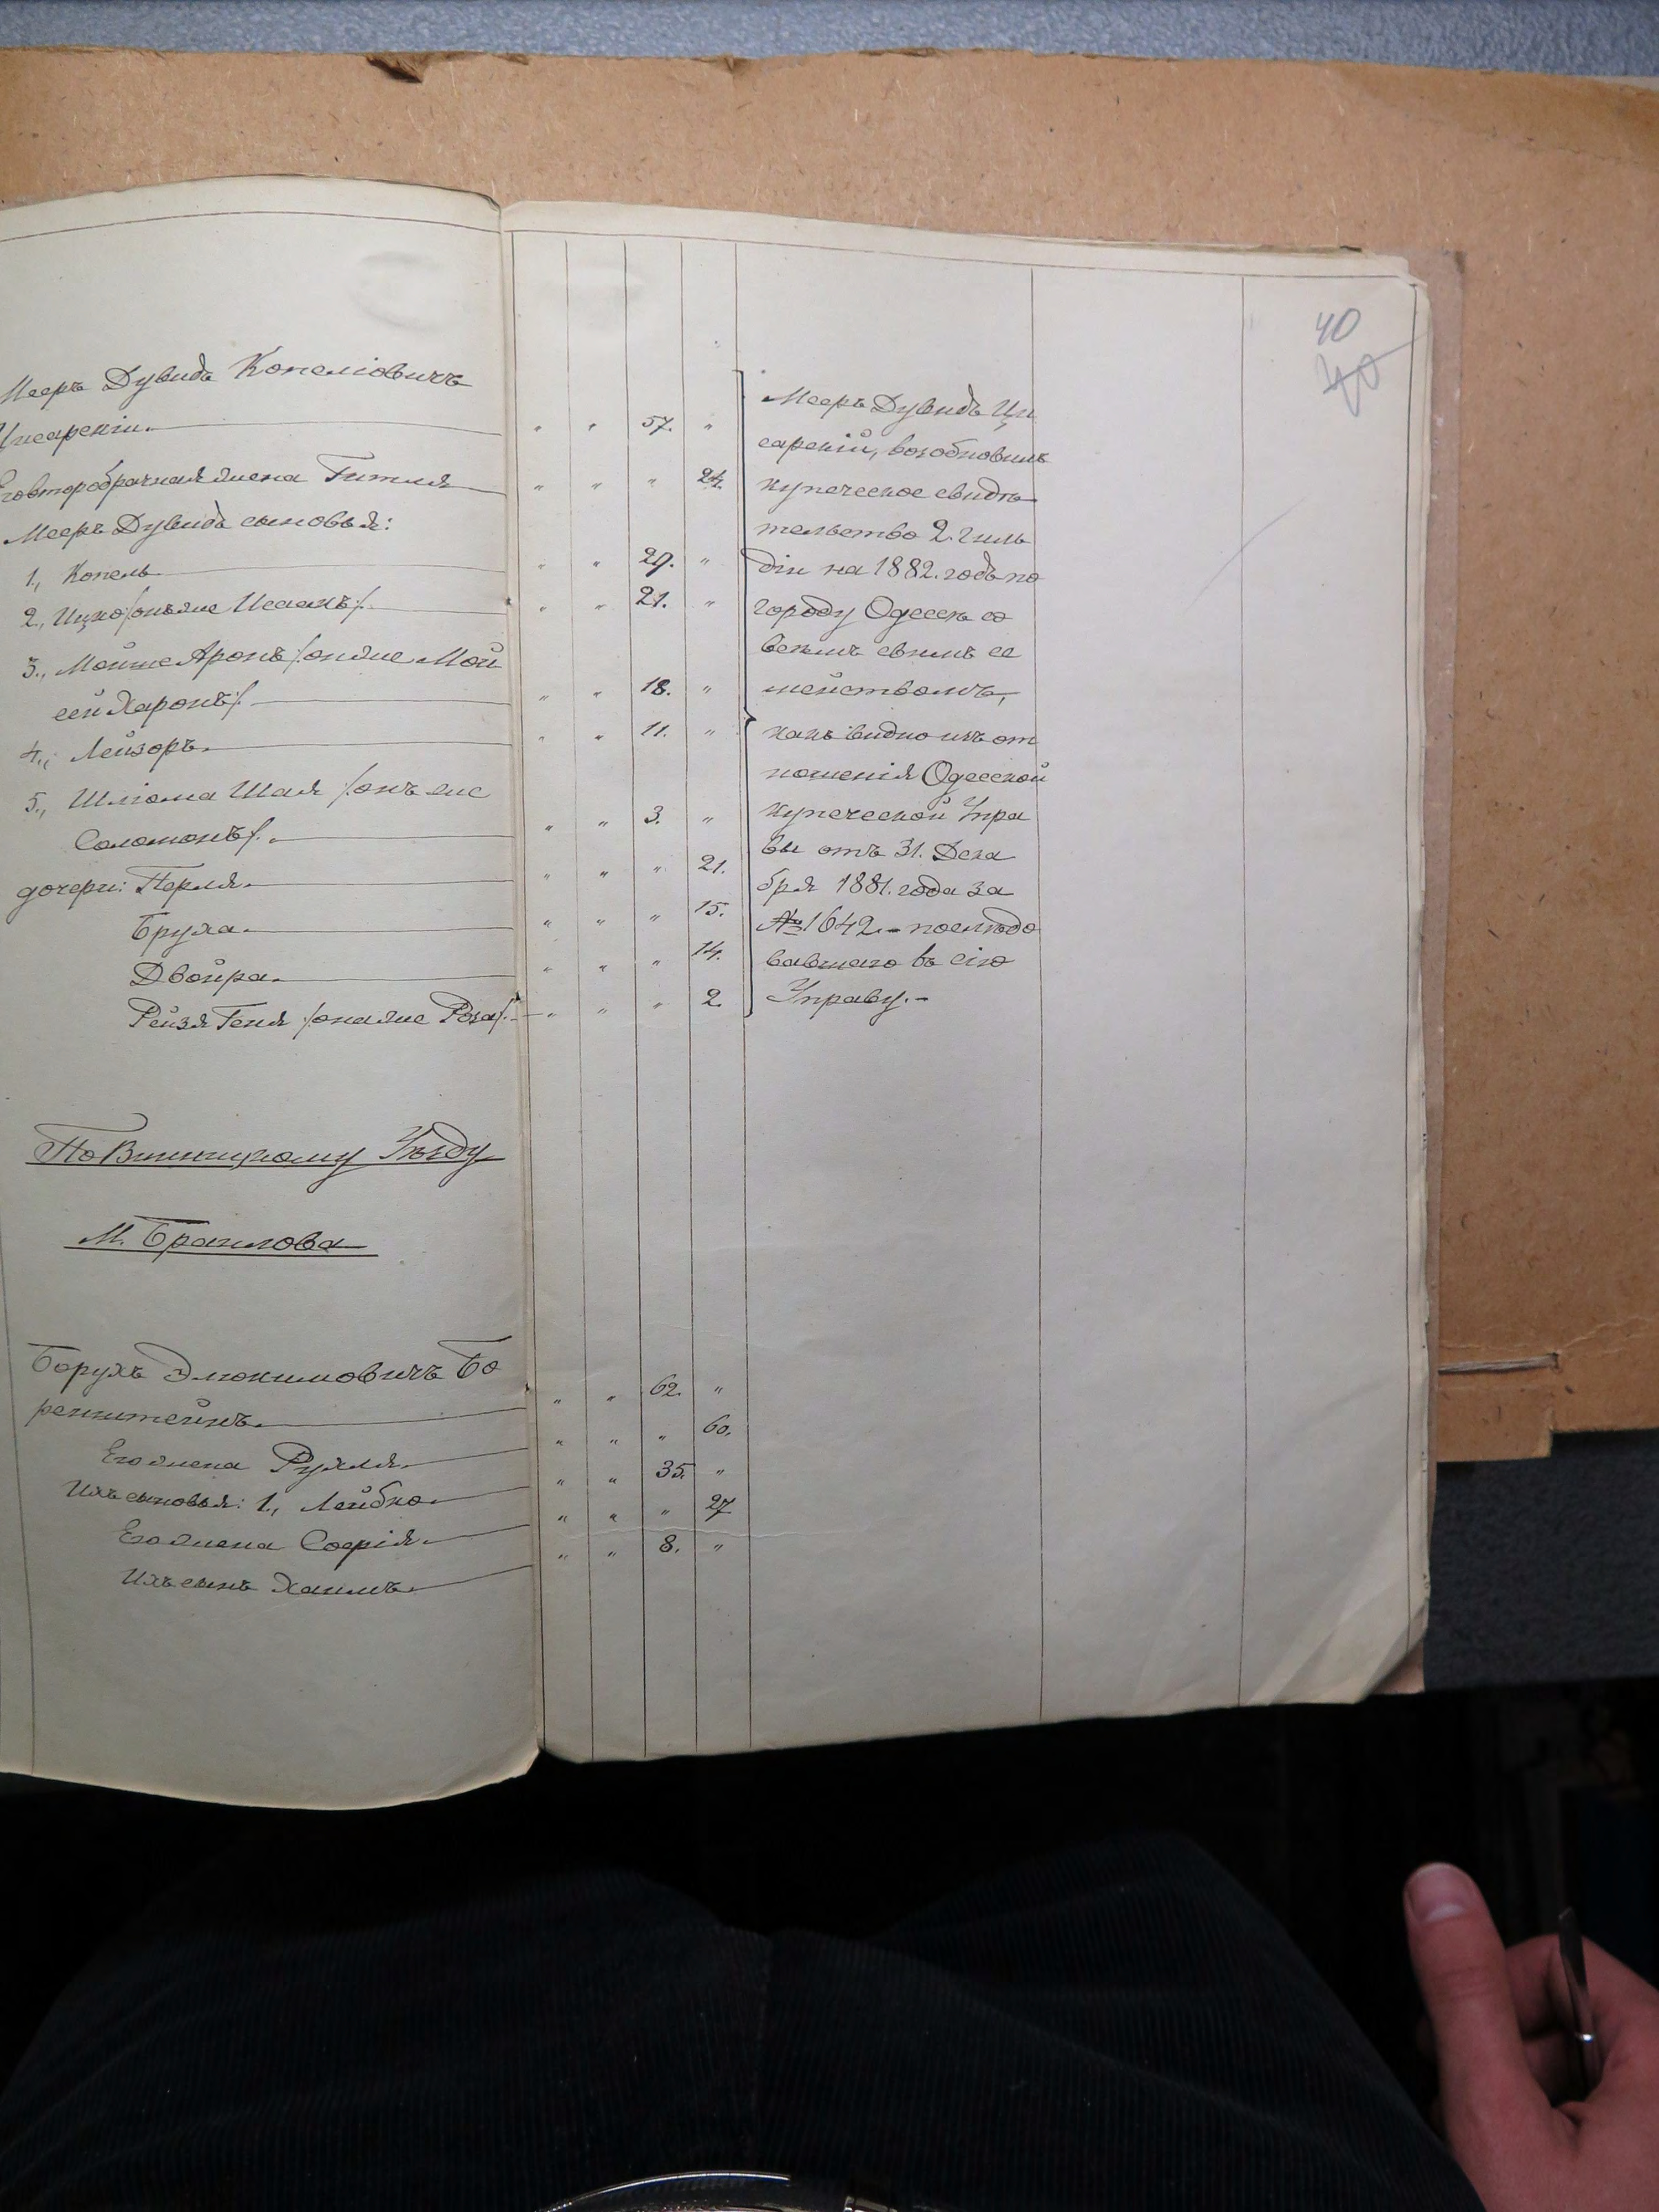 40
40
Мееръ Дувидъ Копеліовичъ
Цисарскій.
" " 57. "
Его второбрачная жена Гитля
" " " 24.
Мееръ Дувида сыновья:
1., Копель
" " 29. "
2., Ицко /онъ же Исаакъ/.
" " 21. "
3., Мойше Аронъ /он же Мой
сей Харонъ/.
" " 18. "
4., Лейзоръ.
" " 11. "
5., Шліома Шая /онъ же
Соломонъ/.
" " 3. "
дочери: Перля.
" " " 21.
Бруха.
" " " 15.
Двойра.
" " " 14.
Рейзя Геня /она же Роза/.
" " " 2.
Мееръ Дувидъ Ци
сарскій, возобновилъ
купеческое свидѣ
тельство 2. гиль
діи на 1882. годъ по
городу Одессѣ со
всѣмъ свимъ се
мействомъ,
какъ видно изъ от
ношенія Одесской
купеческой Упра
вы отъ 31. Дека
бря 1881. года за
№ 1642. - послѣдо
вавшаго въ сію
Управу. -
По Винницкому Уѣзду
М. Браилова
Борухъ Элюкимовичъ Бо
ренштейнъ.
" " 62. "
Его жена Рухля.
" " " 60.
Ихъ сыновья: 1., Лейбко.
" " 35. "
Его жена Софія.
" " " 27
Ихъ сынъ Хаимъ.
" " 8. "